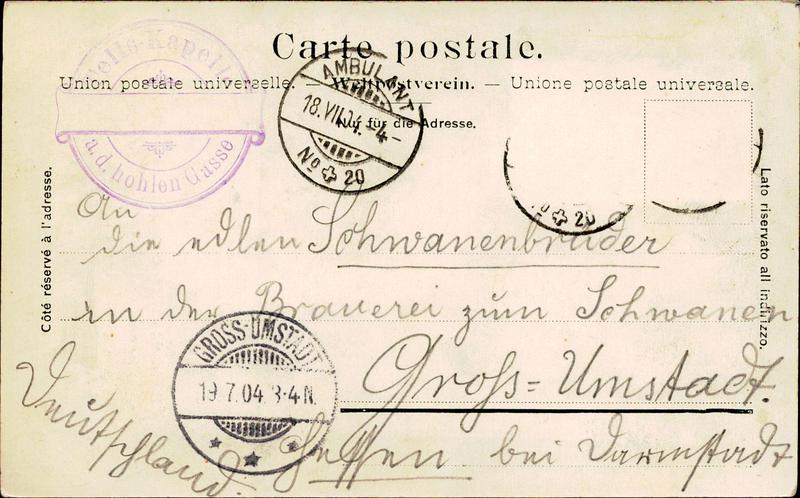 Carte postale.
Union postale universelle. — Weltpostverein. — Unione postale universale.
Nur für die Adresse.
Côté réservé à l'adresse.
Lato riservato all indirizzo.
Telle-Kapelle
a. d. hohlen Gasse
AMBULANT
18. VII. 04. -4-
No 20
No 20
An
die edlen Schwanenbrüder
in der Brauerei zum Schwanen
Gross=Umstadt.
Hessen bei Darmstadt
Deutschland.
GROSS-UMSTADT
19 7.04 3-4 N.